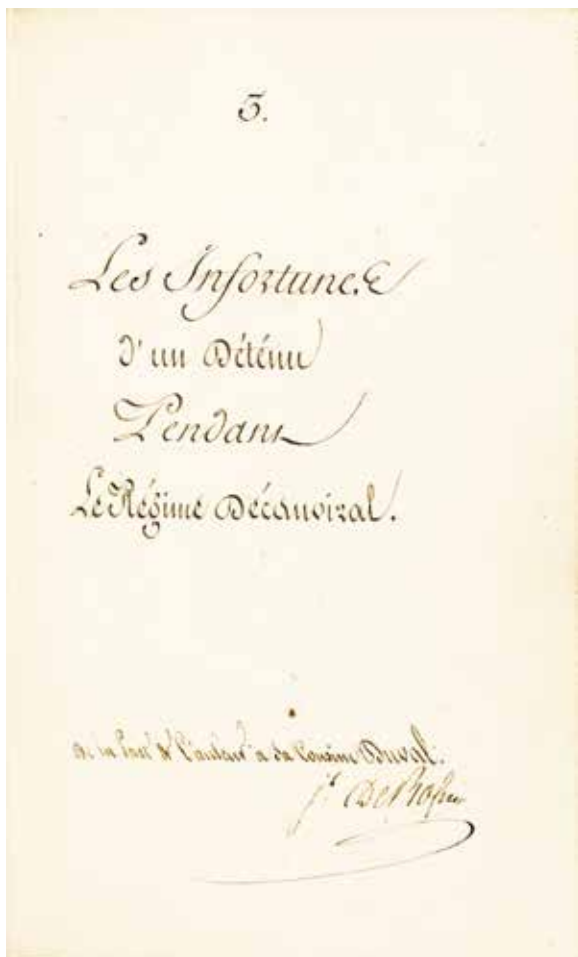 3.
Les Infortunes
d'un Détenu
Pendant
Le Régime Décemviral.
de la Part de l'auteur a sa Cousine Duval.